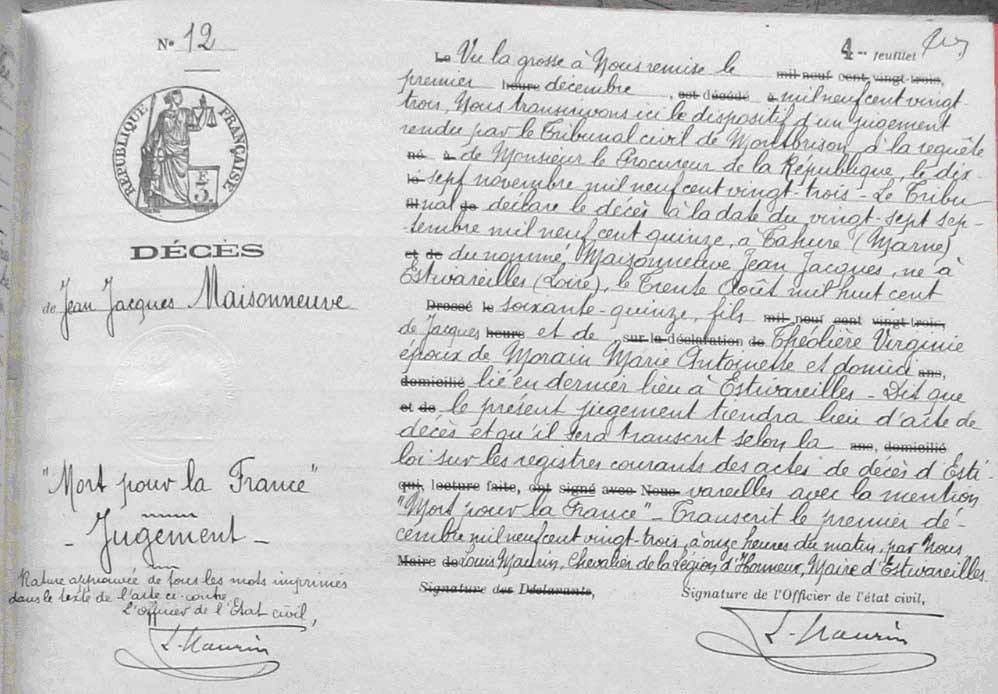 N° 12
RÉPUBLIQUE FRANÇAISE
F
3
DÉCÈS
de Jean Jacques Maisonneuve
"Mort pour la France"
Jugement
Rature approuvée de tous les mots imprimés
dans le texte de l'acte ci-contre
L'officier de l'État civil,
L. Maurin
4me feuillet
Le Vu la grosse à Nous remise le mil neuf cent vingt-trois,
premier heure décembre, est décédé à mil neuf cent vingt-
trois, Nous transcrivons ici le dispositif d'un jugement
rendu par le Tribunal civil de Montbrison, à la requête
né à de Monsieur le Procureur de la République, le dix-
le sept novembre mil neuf cent vingt-trois - Le Tribu
fil nal de déclare le décès à la date du vingt-sept sep-
tembre mil neuf cent quinze, à Tahure (Marne)
et de du nommé Maisonneuve Jean Jacques, né à
Estivareilles (Loire), le Trente Août mil huit cent
Dressé le soixante-quinze, fils mil neuf cent vingt-trois,
de Jacques heure et de sur la déclaration de Théolière Virginie
époux de Morain Marie Antoinette et domici ans,
domicilié lié en dernier lieu à Estivareilles - Dit que
et de le présent jugement tiendra lieu d'acte de
décès et qu'il sera transcrit selon la ans, domicilié
loi sur les registres courants des actes de décès d'Esti-
qui, lecture faite, ont signé avec Nous vareilles avec la mention
"Mort pour la France" - Transcrit le premier dé-
cembre mil neuf cent vingt-trois, à onze heures du matin, par Nous
Maire de Louis Maurin, Chevalier de la Légion d'Honneur, Maire d'Estivareilles.
Signature des Déclarants,
Signature de l'Officier de l'état civil,
L. Maurin